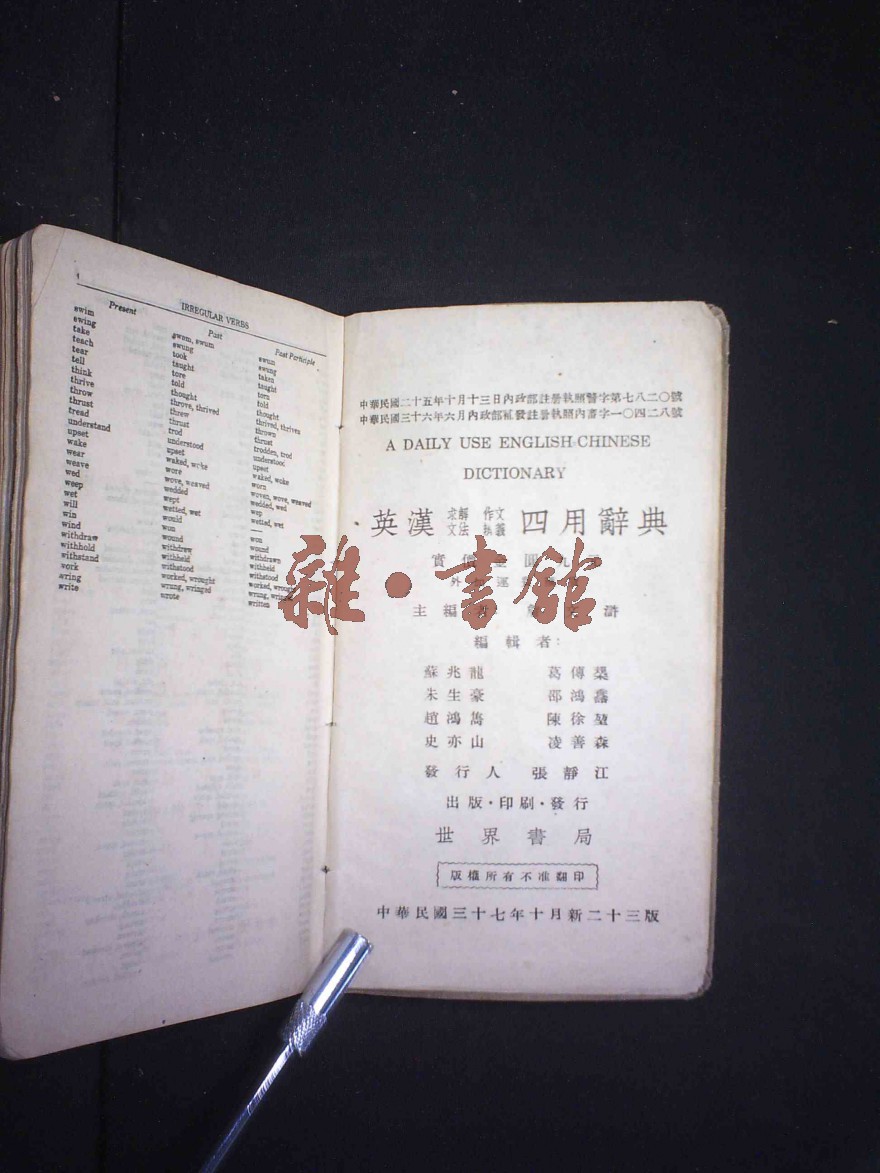 IRREGULAR VERBS
Present Past Past Participle
swim swam, swum swum
swing swung swung
take took taken
teach taught taught
tear tore torn
tell told told
think thought thought
thrive throve, thrived thrived, thriven
throw threw thrown
thrust thrust thrust
tread trod trodden, trod
understand understood understood
upset upset upset
wake waked, woke waked, woke
wear wore worn
weave wove, weaved woven, wove, weaved
wed wedded wedded, wed
weep wept wep
wet wetted, wet wetted, wet
will would —
win won won
wind wound wound
withdraw withdrew withdrawn
withhold withheld withheld
withstand withstood withstood
work worked, wrought worked, wrought
wring wrung, wringed wrung, wringed
write wrote written
中華民國二十五年十月十三日內政部註册執照警字第七八二〇號
中華民國三十六年六月內政部補發註册執照內書字一〇四二八號
A DAILY USE ENGLISH-CHINESE
DICTIONARY
英漢 求解 作文 文法 辨義 四用辭典
實價
外
主編者
編輯者:
蘇兆龍 葛傳槼
朱生豪 邵鴻馫
趙鴻雋 陳徐堃
史亦山 凌善森
發行人 張靜江
出版·印刷·發行
世界書局
版權所有不准翻印
中華民國三十七年十月新二十三版
雜·書館